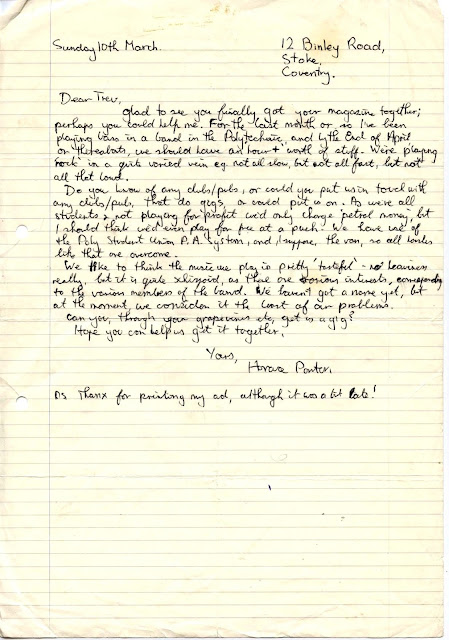 Sunday 10th March.
12 Binley Road,
Stoke,
Coventry.
Dear Trev,
Glad to see you finally got your magazine together;
perhaps you could help me. For the last month or so I've been
playing bass in a band in the Polytechnic, and by the End of April
or thereabouts, we should have an hour + worth of stuff. We're playing
rock in a quite varied vein eg. not all slow, but not all fast, but not
all that loud.
Do you know of any clubs/pubs, or could you put us in touch with
any clubs/pubs, that do gigs, or could put us on. As we're all
students & not playing for profit we'd only charge petrol money, but
I should think we'd even play for free at a push! We have use of
the Poly Student Union P.A. system, and, I suppose, the van, so all hassles
like that are overcome.
We like to think the music we play is pretty 'tasteful' - no heaviness
really, but it is quite schizoid, as there are various interests, corresponding
to the various members of the band. We haven't got a name yet, but
at the moment, we consider it the least of our problems.
Can you, through your grapevines etc, get us a gig?
Hope you can help us get it together,
Yours,
Horace Panter.
Ps Thanx for printing my ad, although it was a bit late!